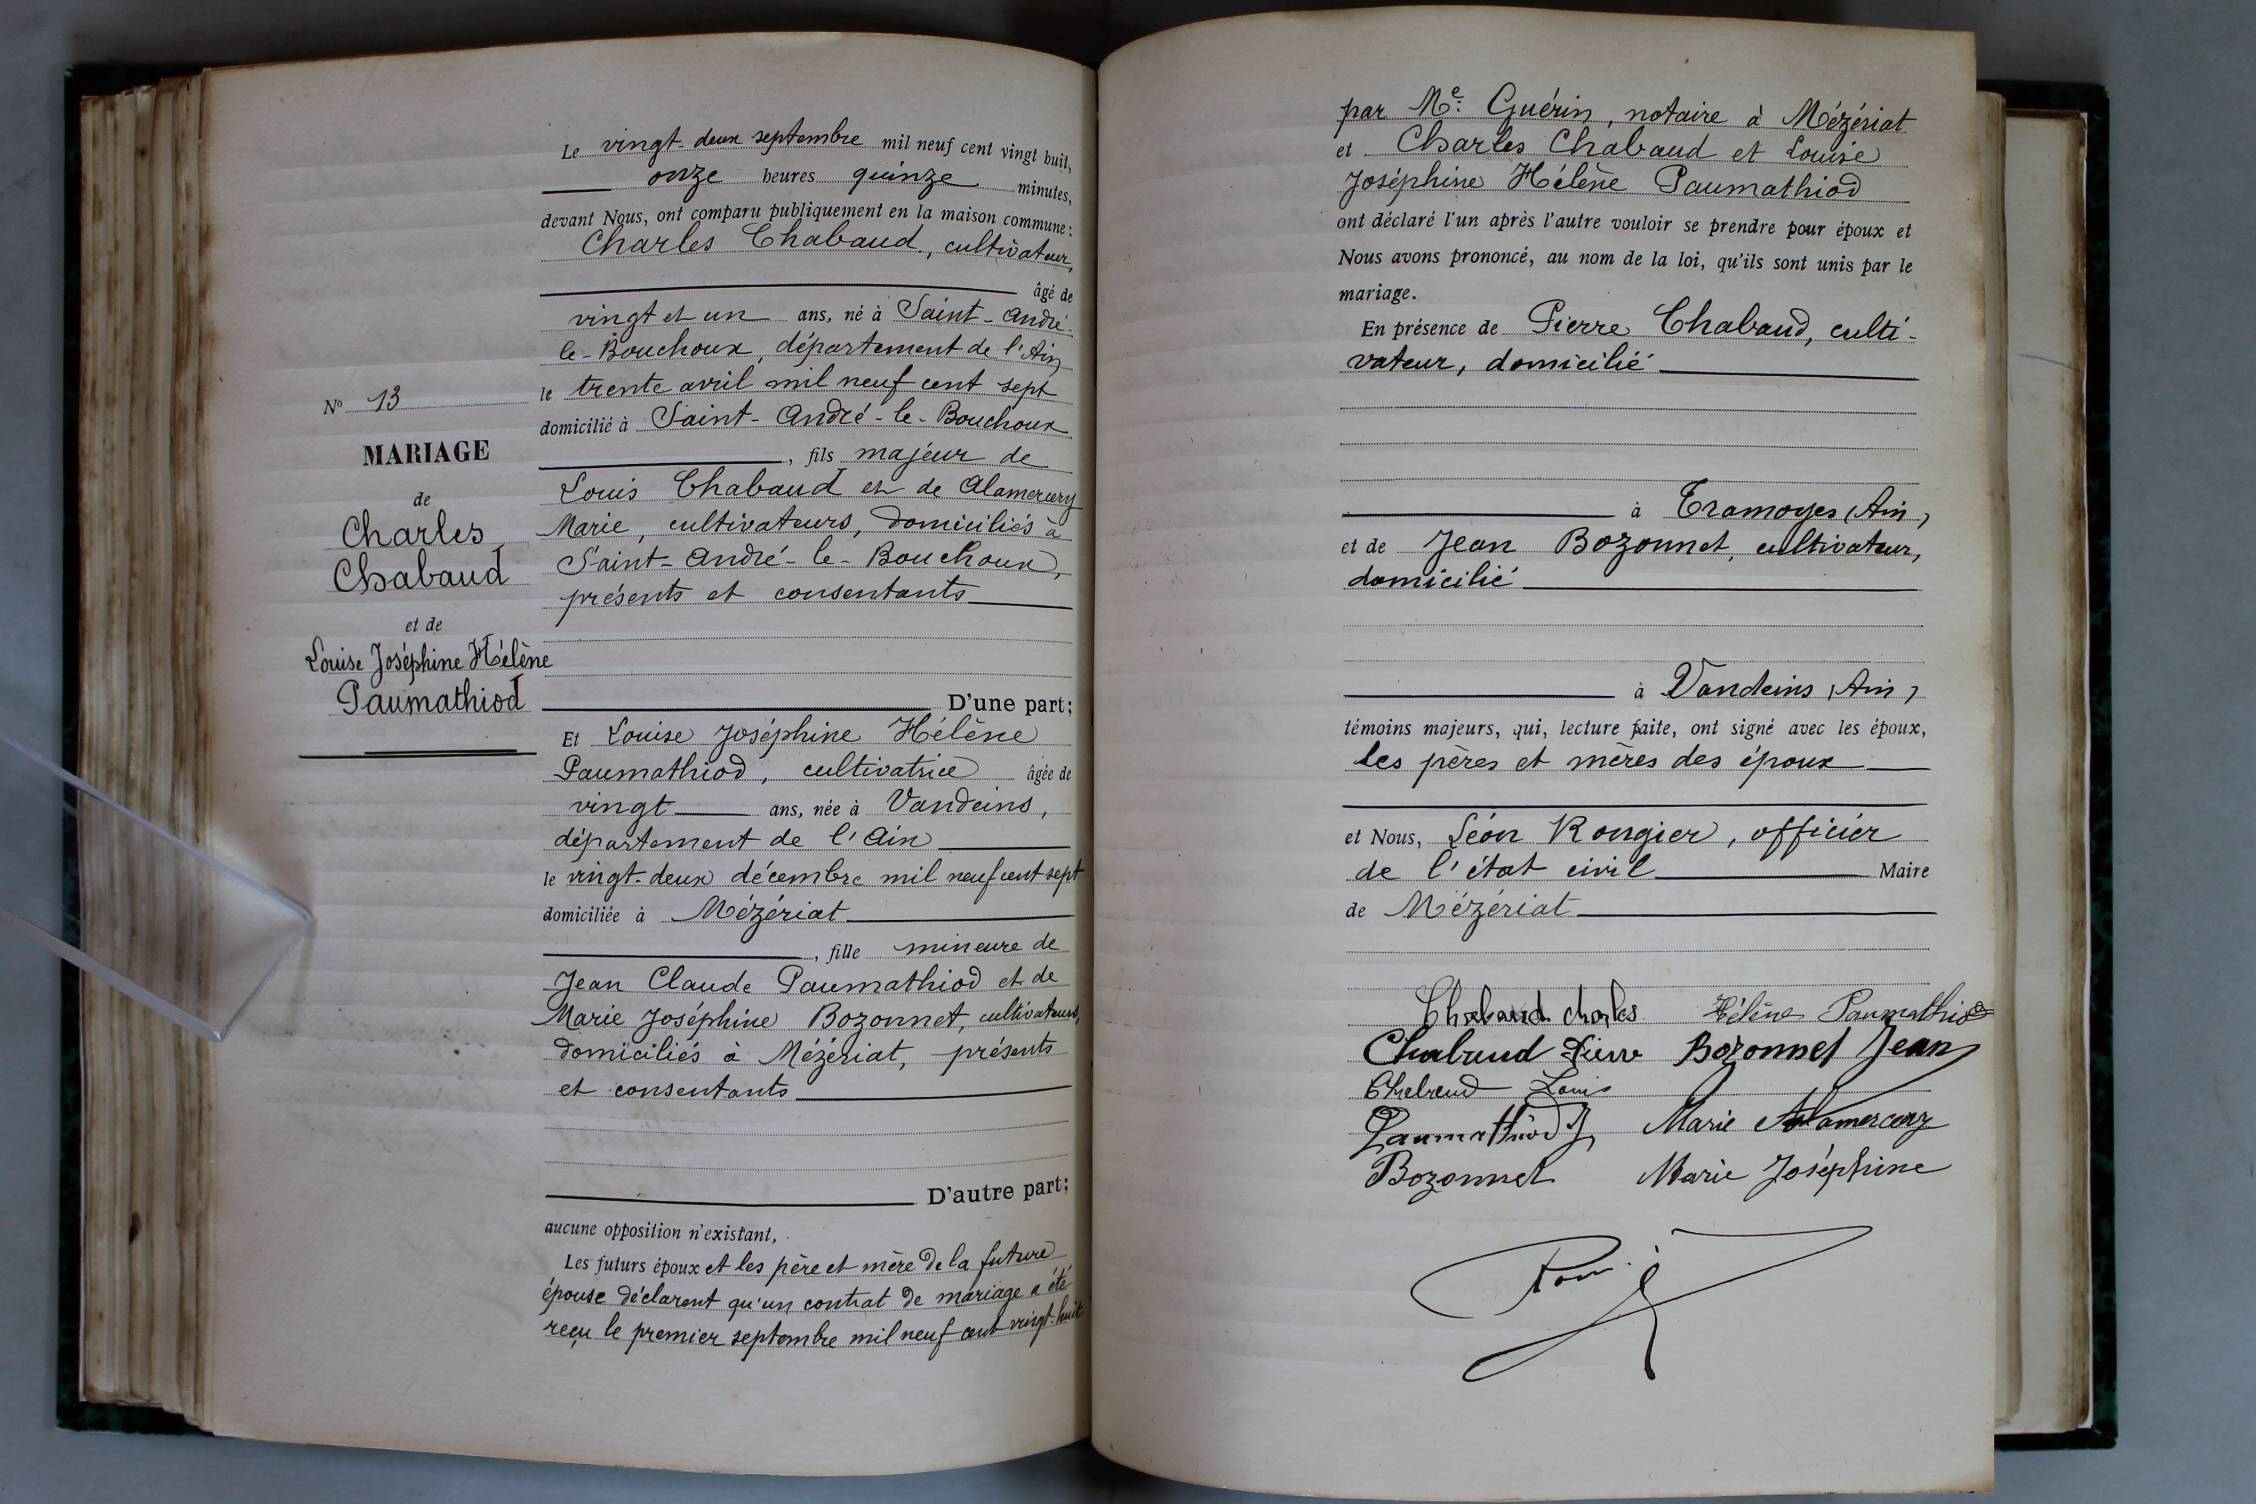 Le vingt-deux septembre mil neuf cent vingt huit,
onze heures quinze minutes,
devant Nous, ont comparu publiquement en la maison commune :
Charles Chabaud, cultivateur,
âgé de
vingt et un ans, né à Saint-André-
le-Bouchoux, département de l'Ain
le trente avril mil neuf cent sept
domicilié à Saint-André-le-Bouchoux
, fils majeur de
Louis Chabaud et de Alamercery
Marie, cultivateurs, domiciliés à
Saint-André-le-Bouchoux,
présents et consentants
D'une part ;
Nº 13
MARIAGE
de
Charles
Chabaud
et de
Louise Joséphine Hélène
Paumathiod
Et Louise Joséphine Hélène
Paumathiod, cultivatrice âgée de
vingt ans, née à Vandeins,
département de l'Ain
le vingt-deux décembre mil neuf cent sept
domiciliée à Mézériat
, fille mineure de
Jean Claude Paumathiod et de
Marie Joséphine Bozonnet, cultivateurs,
domiciliés à Mézériat, présents
et consentants
D'autre part ;
aucune opposition n'existant,
Les futurs époux et les père et mère de la future
épouse déclarent qu'un contrat de mariage a été
reçu le premier septembre mil neuf cent vingt-huit
par Me. Guérin, notaire à Mézériat
et Charles Chabaud et Louise
Joséphine Hélène Paumathiod
ont déclaré l'un après l'autre vouloir se prendre pour époux et
Nous avons prononcé, au nom de la loi, qu'ils sont unis par le
mariage.
En présence de Pierre Chabaud, culti-
vateur, domicilié
à Tramoyes (Ain)
et de Jean Bozonnet, cultivateur,
domicilié
à Vandeins (Ain)
témoins majeurs, qui, lecture faite, ont signé avec les époux,
les pères et mères des époux
et Nous, Léon Rougier, officier
de l'état civil Maire
de Mézériat
Chabaud Charles Hélène Paumathiod
Chabaud Pierre Bozonnet Jean
Chabaud Louis
Paumathiod J Marie Alamercery
Bozonnet Marie Joséphine